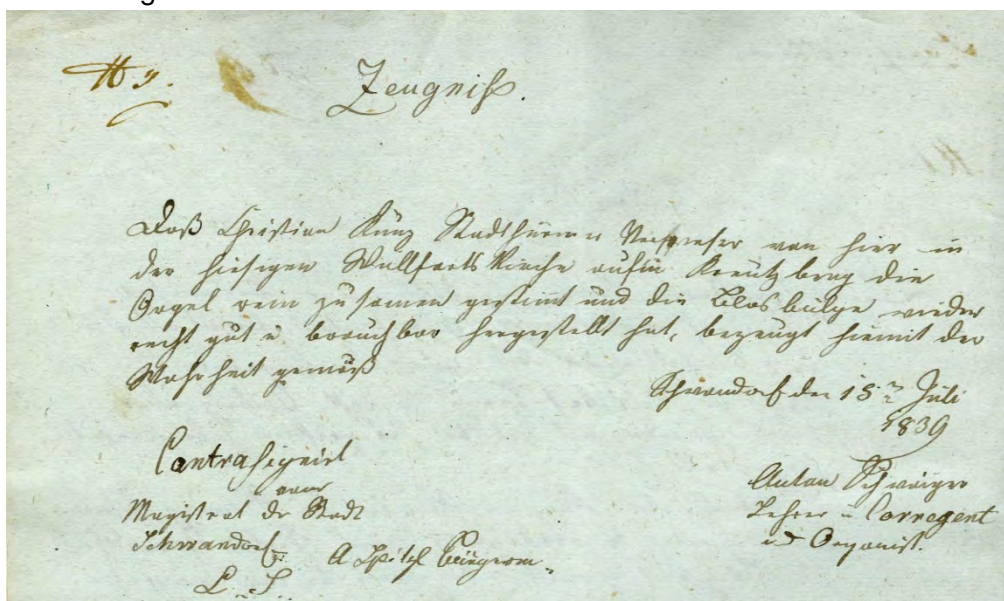 Zeugniß.
Daß Christian Kunz Stadthürmer Verweser von hier in
der hiesigen Wallfarts Kirche aufm Kreutzberg die
Orgel rein zusamen gestimt und die Blosbälge wieder
recht gut u brauchbar hergestellt hat, bezeugt hiemit der
Wahrheit gemäß
Schwandorf den 15 Juli
1839
Contrasignirt
vom
Magistrat der Stadt
Schwandorf
L. S.
Anton Schwaiger
Lehrer u Corregent
u Organist.